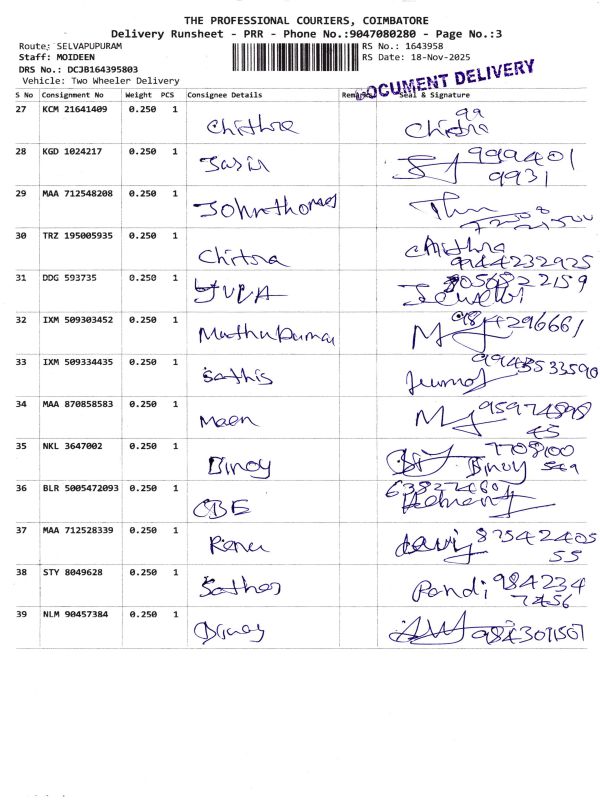 THE PROFESSIONAL COURIERS, COIMBATORE
Delivery Runsheet - PRR - Phone No.:9047080280 - Page No.:3
Route: SELVAPUPURAM
RS No.: 1643958
Staff: MOIDEEN
RS Date: 18-Nov-2025
DRS No.: DCJB164395803
Vehicle: Two Wheeler Delivery
DOCUMENT DELIVERY
S No Consignment No Weight PCS Consignee Details Remarks Seal & Signature
27 KCM 21641409 0.250 1 Chithra 99
Chitra
28 KGD 1024217 0.250 1 Jasir 999401
9931
29 MAA 712548208 0.250 1 Johnthomas
30 TRZ 195005935 0.250 1 Chitra Chithra
9944232925
31 DDG 593735 0.250 1 9056822159
32 IXM 509303452 0.250 1 Muthukumar M 984296661
33 IXM 509334435 0.250 1 Sathis
34 MAA 870858583 0.250 1 Maen 95974898
45
35 NKL 3647002 0.250 1 Binoy 7708100
Binoy 569
36 BLR 5005472093 0.250 1 CBE
37 MAA 712528339 0.250 1 Renu 87542405
55
38 STY 8049628 0.250 1 Sathes Pandi 984234
7456
39 NLM 90457384 0.250 1 9843071507